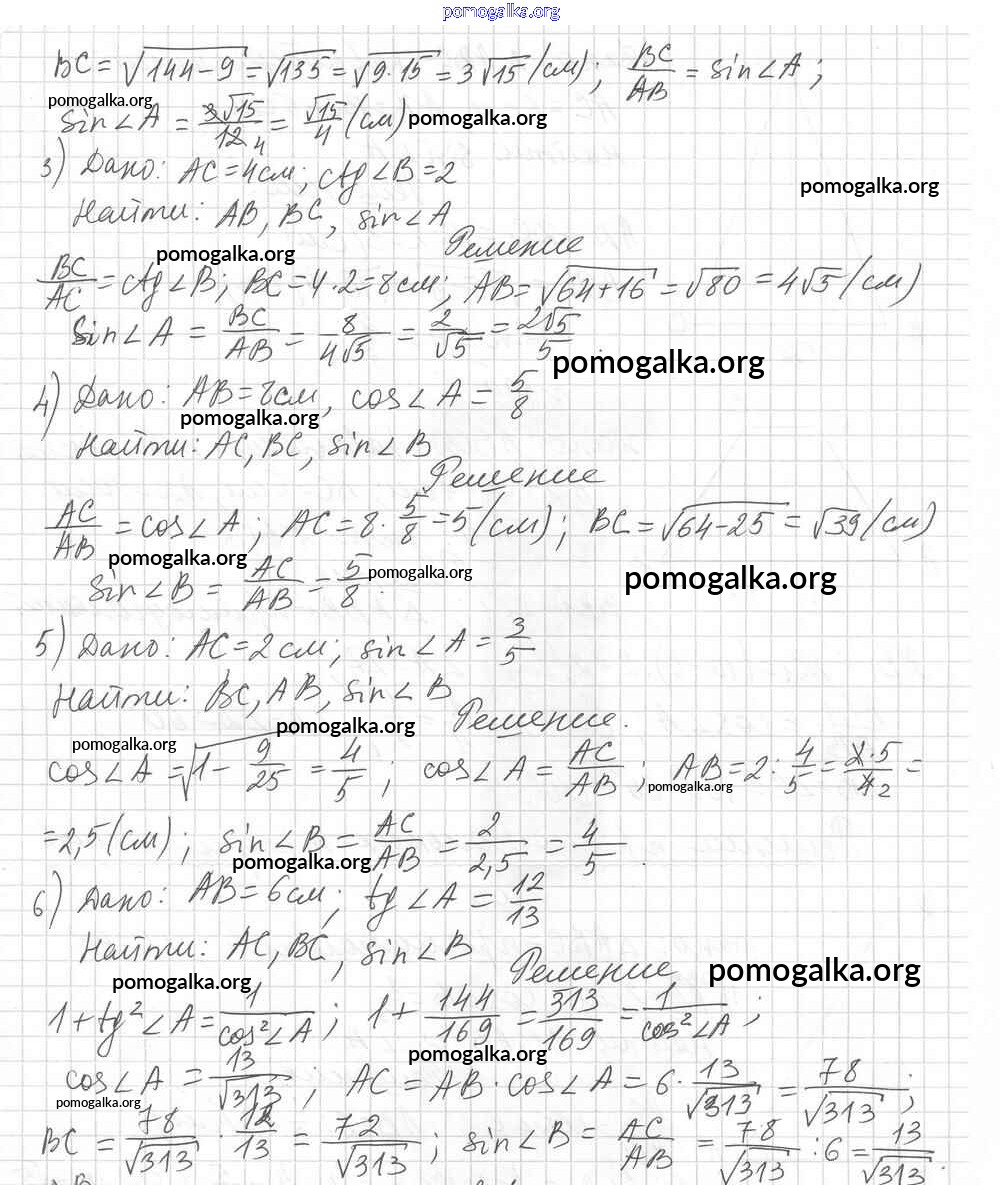 pomogalka.org
BC = √(144−9) = √135 = √(9·15) = 3√15 (см); BC/AB = sin∠A;
pomogalka.org
Sin∠A = 3√15/12 4 = √15/4 (см) pomogalka.org
3) Дано: AC = 4см; ctg∠B = 2
pomogalka.org
Найти: AB, BC, sin∠A
Решение
pomogalka.org
BC/AC = ctg∠B; BC = 4·2 = 8см; AB = √(64+16) = √80 = 4√5 (см)
Sin∠A = BC/AB = 8/4√5 = 2/√5 = 2√5/5
pomogalka.org
4) Дано: AB = 8см, cos∠A = 5/8
pomogalka.org
Найти: AC, BC, sin∠B
Решение
AC/AB = cos∠A; AC = 8·5/8 = 5 (см); BC = √(64−25) = √39 (см)
pomogalka.org
pomogalka.org
pomogalka.org
sin∠B = AC/AB = 5/8.
5) Дано: AC = 2см; sin∠A = 3/5
Найти: BC, AB, sin∠B
pomogalka.org
Решение.
pomogalka.org
cos∠A = √(1−9/25) = 4/5; cos∠A = AC/AB; AB = 2:4/5 = 2·5/4 2 =
pomogalka.org
= 2,5 (см); sin∠B = AC/AB = 2/2,5 = 4/5.
pomogalka.org
6) Дано: AB = 6см; tg∠A = 12/13
Найти: AC, BC, sin∠B
Решение
pomogalka.org
pomogalka.org
1+tg²∠A = 1/cos²∠A; 1+144/169 = 313/169 = 1/cos²∠A;
pomogalka.org
cos∠A = 13/√313; AC = AB·cos∠A = 6·13/√313 = 78/√313;
pomogalka.org
BC = 78/√313 · 12/13 = 72/√313; sin∠B = AC/AB = 78/√313 : 6 = 13/√313.